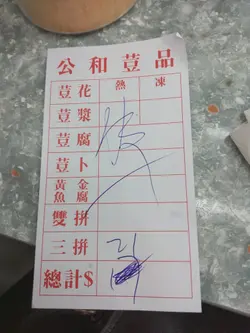 公和荳品
熱 凍
荳花
荳漿
荳腐
荳卜
黃金
魚腐
雙拼
三拼
總計$